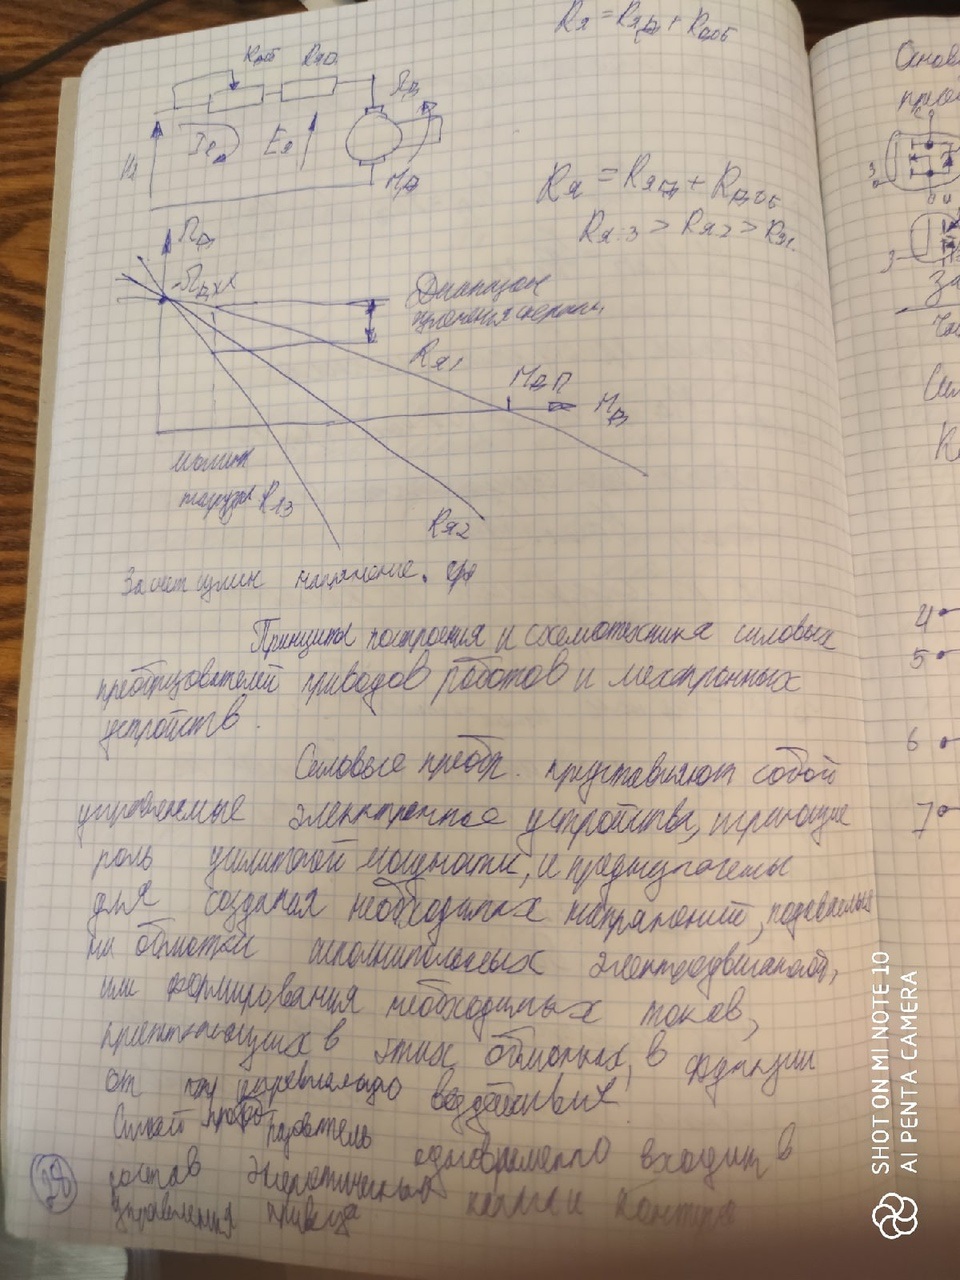 Rя = Rяд + Rдоб
Rдоб Rяд
Ωд
Iя Eя
Mд
Rя = Rяд + Rдоб
Rя3 > Rя2 > Rя1
Ωд
Ωдхх
Диапазон
Rя1
Mдп Mд
Rя3
Rя2
За счет напряжение.
Принципы построения и схемотехника силовых
преобразователей приводов роботов и мехатронных
устройств.
Силовые преобр. представляют собой
управляемые электронные устройства, играющие
роль усилителей мощности, и предназначены
для создания необходимых напряжений, подаваемых
на обмотки исполнительных электродвигателей,
или формирования необходимых токов,
протекающих в этих обмотках, в функции
от управляющего воздействия
преобразователь одновременно входит в
состав энергетических канала и контура
управления привода
28
Основ
З
З
За
Сил
4
5
6
7
SHOT ON MI NOTE 10
AI PENTA CAMERA